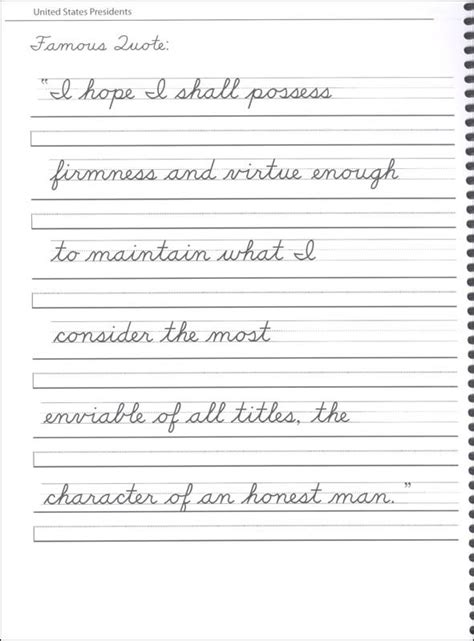 United States Presidents
Famous Quote:
"I hope I shall possess
firmness and virtue enough
to maintain what I
consider the most
enviable of all titles, the
character of an honest man."